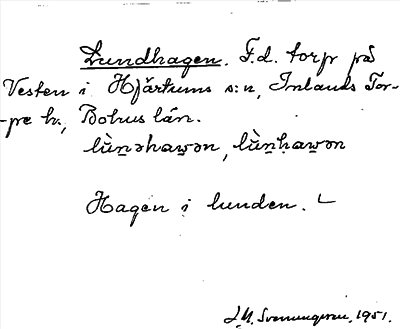 Lundhagen. F.d. torp på
Vesten i Hjärtums s:n, Inlands Tor-
-pe h., Bohus län.
lùn̲əhaw̲ən, lùn̲ḥaw̲ən
Hagen i lunden.
J.M. 1951.